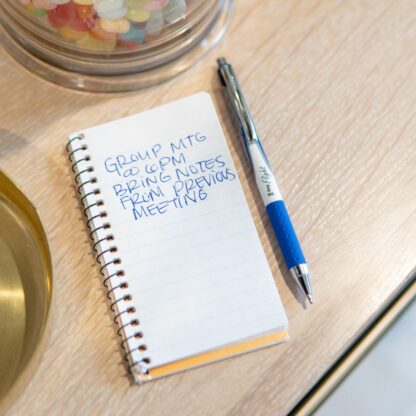 GROUP MTG
@ 6PM
BRING NOTES
FROM PREVIOUS
MEETING